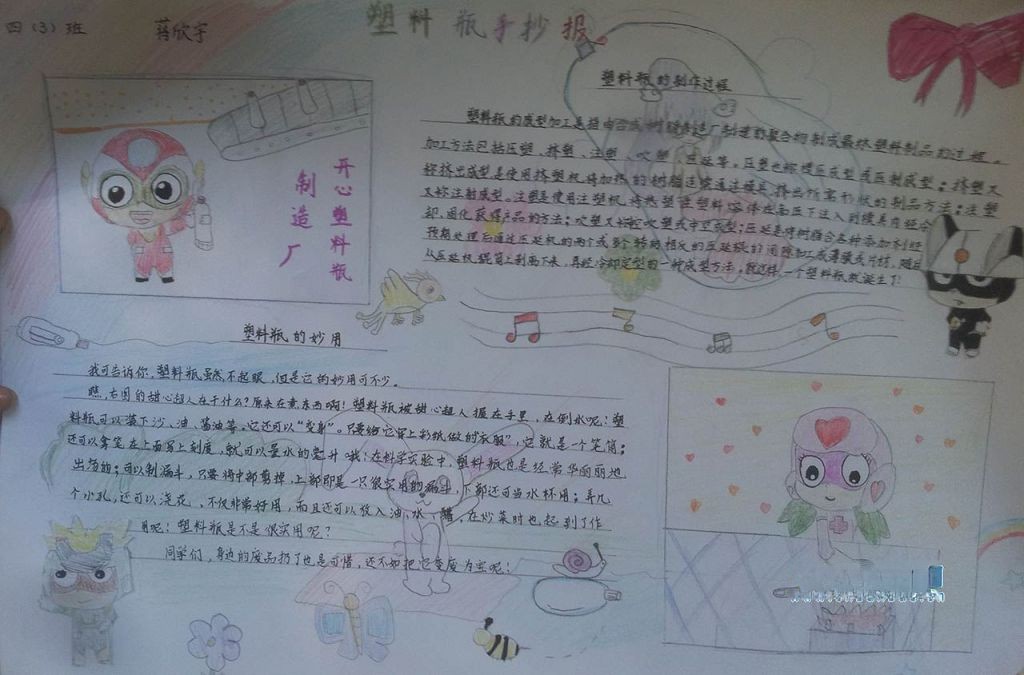 四（3）班
蒋欣宇
塑料瓶手抄报
开心塑料瓶
制造厂
塑料瓶的制作过程
塑料瓶的成型加工是指由合成树脂制造厂制造的聚合物制成最终塑料制品的过程。
加工方法包括压塑、挤塑、注塑、吹塑、压延等。压塑也称模压成型或压制成型；挤塑又
称挤出成型是使用挤塑机将加热的树脂连续通过模具，挤出所需形状的制品方法；注塑
又称注射成型。注塑是使用注塑机将热塑性塑料熔体在高压下注入到模具内经冷
却、固化获得产品的方法；吹塑又称中空吹塑或中空成型；压延是将树脂各种添加剂经
预期处理后通过压延机的两个或多个转动相反的压延辊的间隙加工成薄膜或片材，随后
从压延机辊筒上剥离下来，再经冷却定型的一种成型方法，就这样一个塑料瓶就诞生了！
塑料瓶的妙用
我可告诉你，塑料瓶虽然不起眼，但是它的妙用可不少。
瞧，右图的甜心超人在干什么？原来在煮东西啊！塑料瓶被甜心超人握在手里，在倒水呢！塑
料瓶可以装下沙、油、酱油等。它还可以“变身”。只要给它穿上彩纸做的“衣服”，它就是一个笔筒；
还可以拿笔在上面写上刻度，就可以量水的毫升哦！在科学实验中，塑料瓶也是经常华丽丽地
出场的；可以制漏斗，只要将中部剪掉，上部即是一只很实用的漏斗，下部还可当水杯用；弄几
个小孔，还可以浇花，不仅非常好用，而且还可以放入油、水、醋，在炒菜时也起到了作
用呢！塑料瓶是不是很实用呢？
同学们，身边的废品扔了也是可惜，还不如把它变废为宝呢！